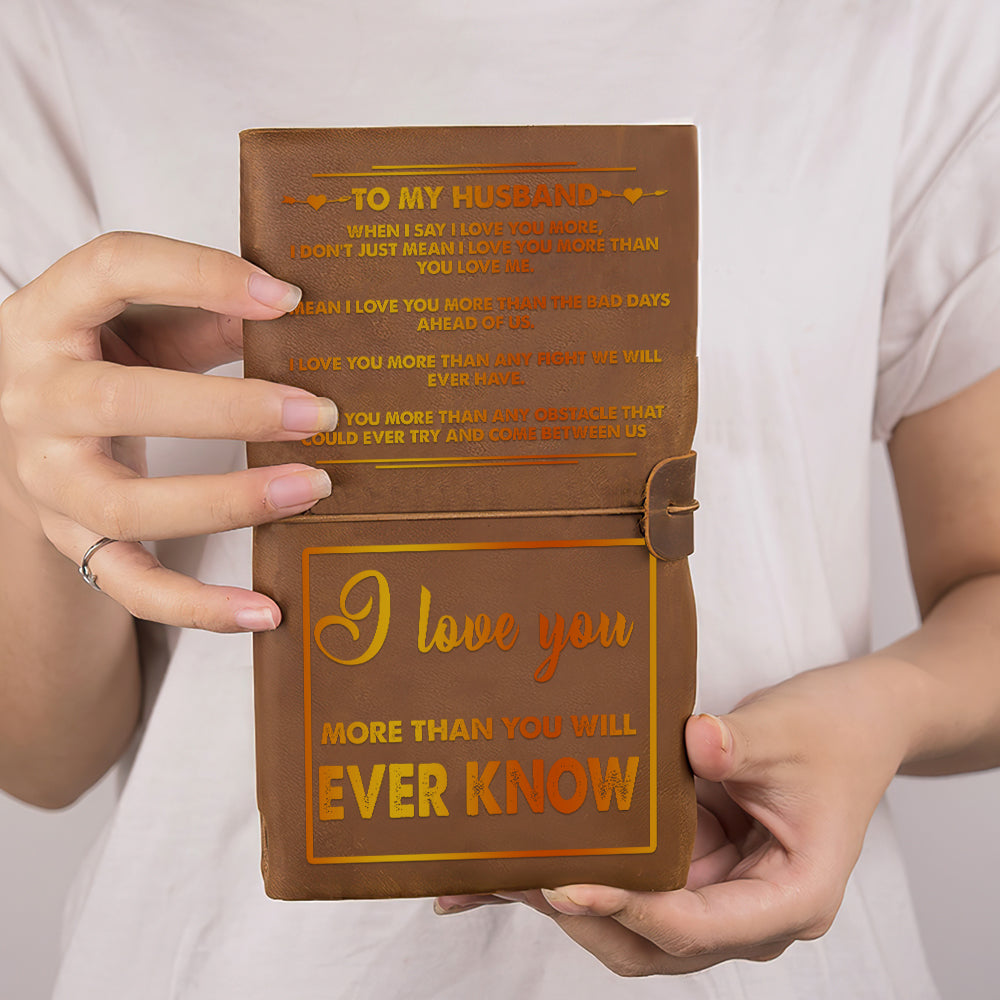 TO MY HUSBAND
WHEN I SAY I LOVE YOU MORE,
I DON'T JUST MEAN I LOVE YOU MORE THAN
YOU LOVE ME.
MEAN I LOVE YOU MORE THAN THE BAD DAYS
AHEAD OF US.
I LOVE YOU MORE THAN ANY FIGHT WE WILL
EVER HAVE.
YOU MORE THAN ANY OBSTACLE THAT
COULD EVER TRY AND COME BETWEEN US
I love you
MORE THAN YOU WILL
EVER KNOW